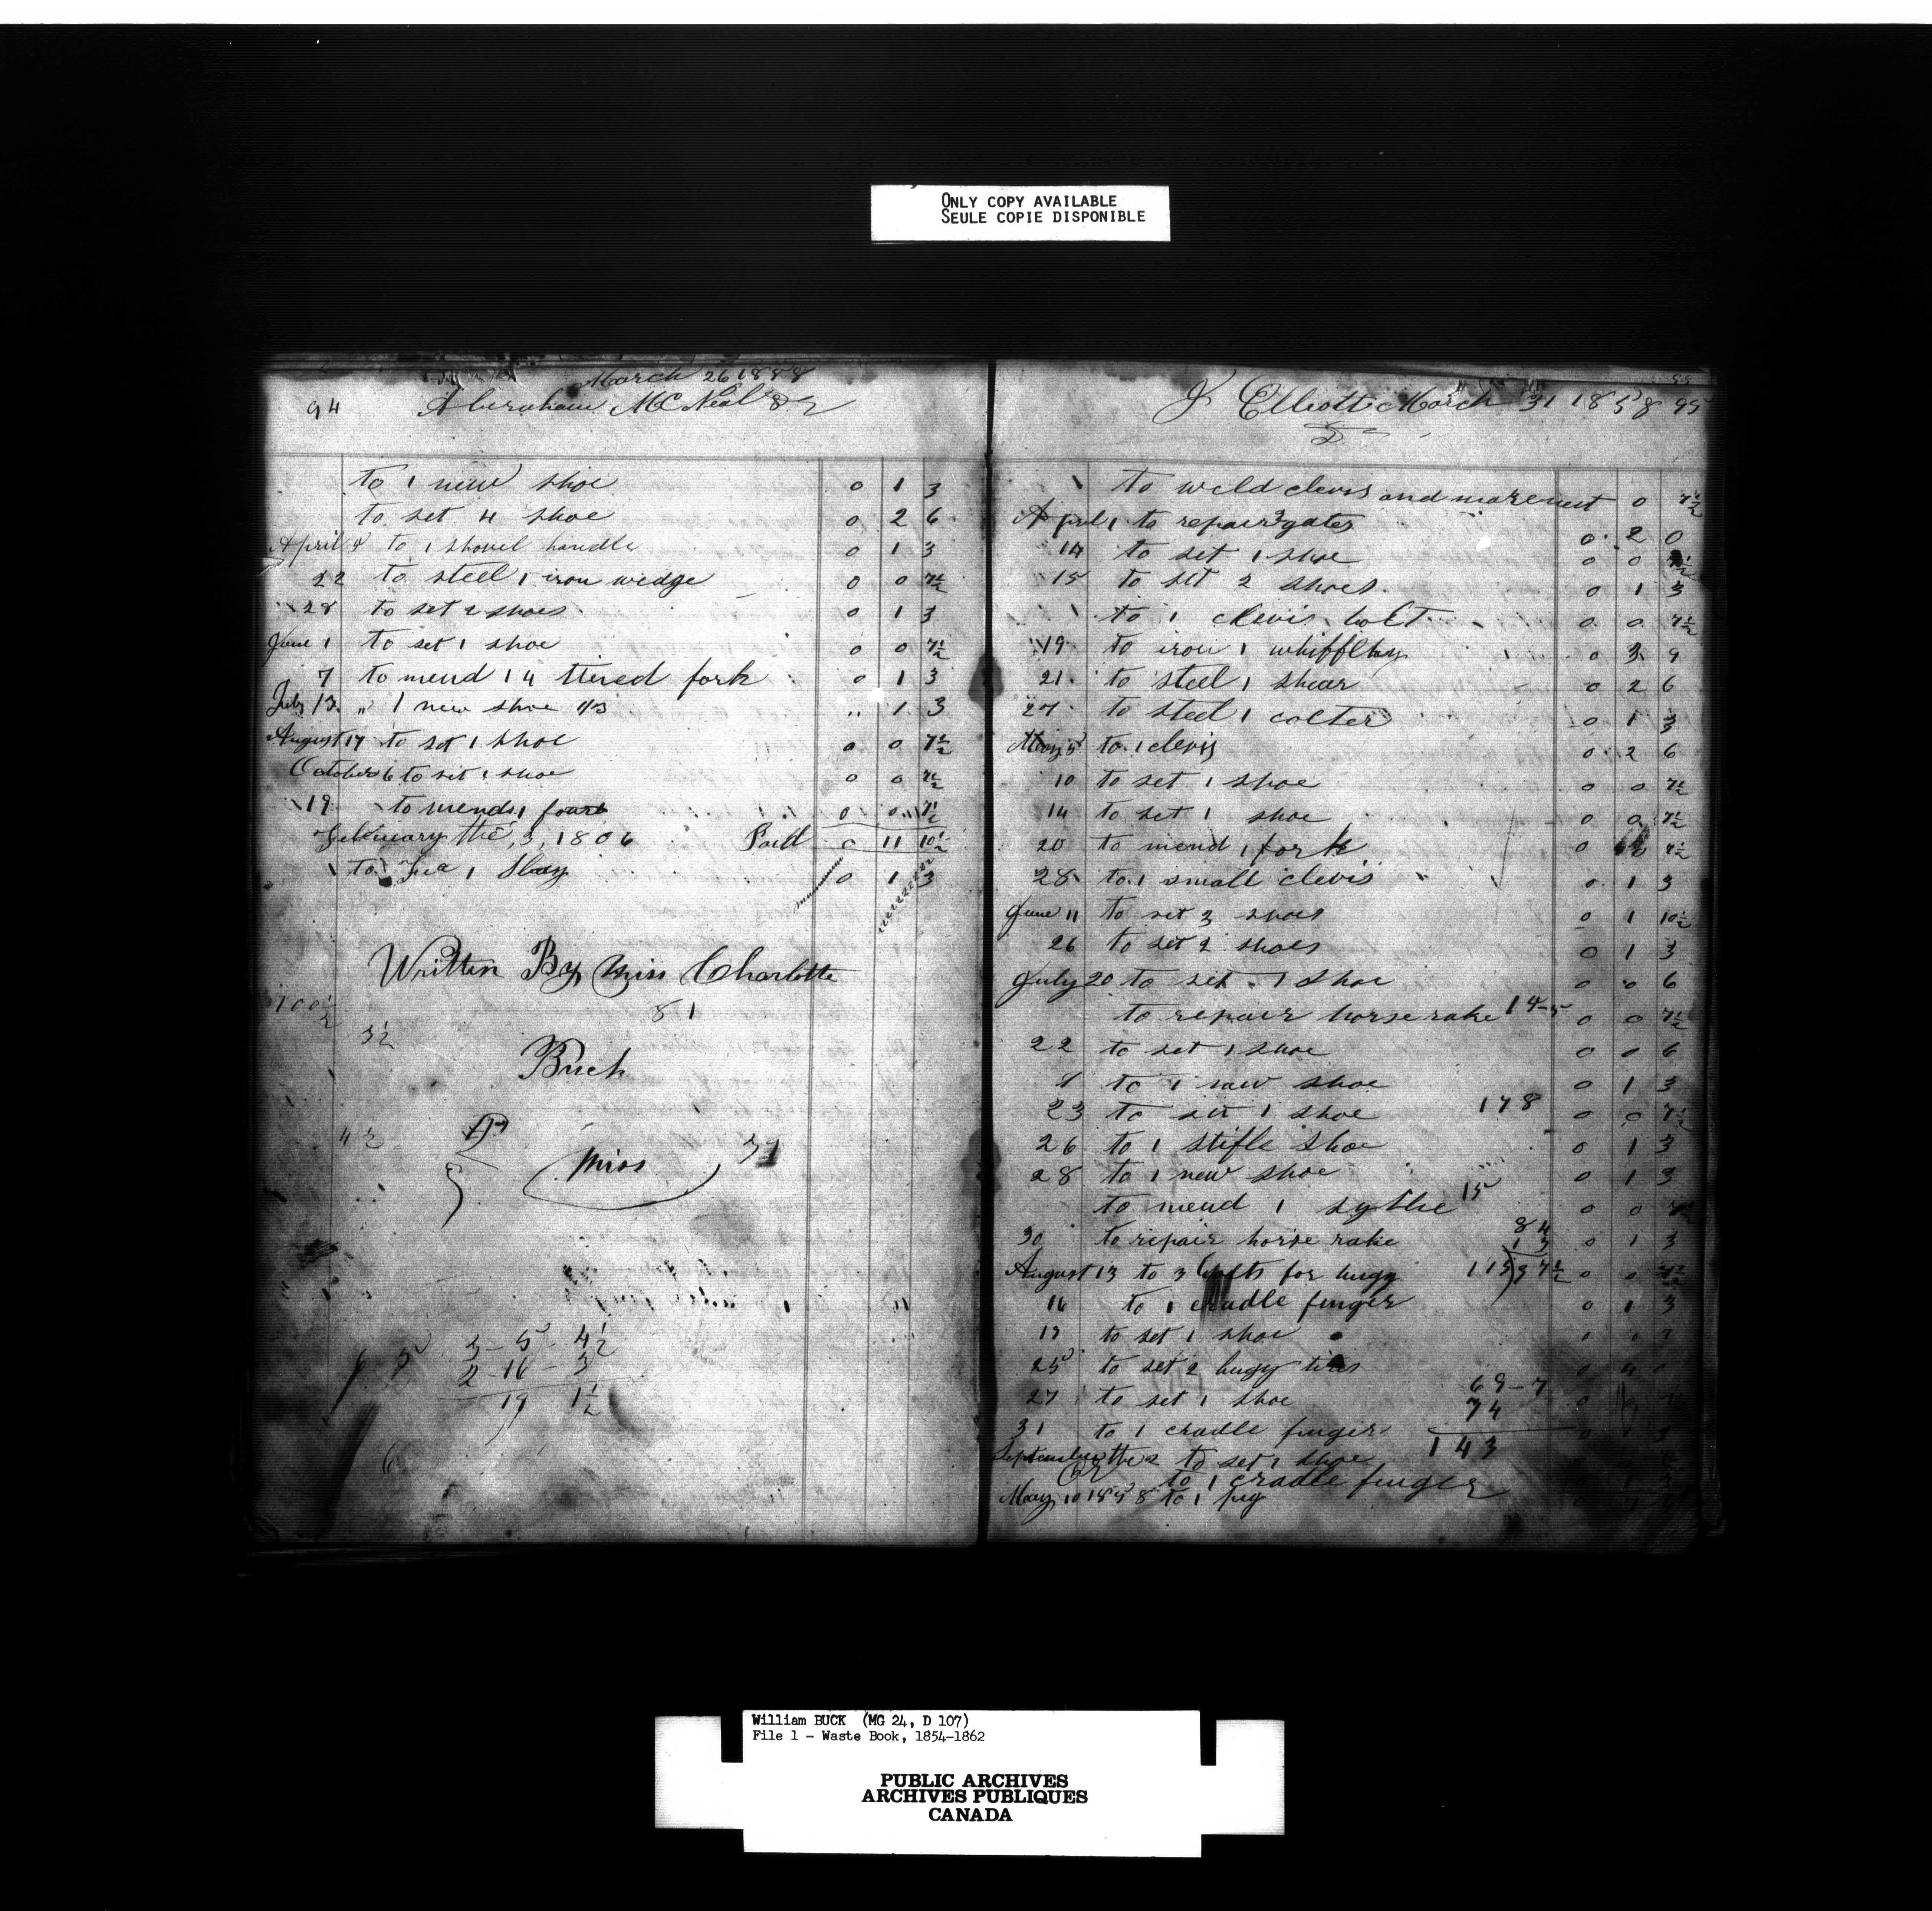 ONLY COPY AVAILABLE
SEULE COPIE DISPONIBLE
March 26 1858
94 Abraham McNeal Dr
to 1 new shoe 0 1 3
to set 4 shoe 0 2 6
April to 1 shovel handle 0 1 3
22 to steel 1 iron wedge 0 0 7½
28 to set 2 shoes 0 1 3
June 1 to set 1 shoe 0 0 7½
7 to mend 1 4 tined fork 0 1 3
July 13 " 1 new shoe 1/3 " 1 3
August 17 to set 1 shoe 0 0 7½
October 6 to set 1 shoe 0 0 7½
19 to mend 1 0 0 7½
February the, 3, 1806 Paid 0 11 10½
to 1 0 1 3
Written By Miss Charlotte
81
100½
3½
Buck
4½
Miss 37
3 - 5 - 4½
2 - 16 - 3
19 1½
6
J Elliott March 31 1858 95
Dr
to weld clevis and 0 7½
April 1 to repair gates 0 2 0
14 to set 1 shoe 0 0 7½
15 to set 2 shoes 0 1 3
to 1 clevis bolt 0 0 7½
19 to iron 1 0 3 9
21 to steel 1 shear 0 2 6
27 to steel 1 colter 0 1 3
May 5 to 1 clevis 0 2 6
10 to set 1 shoe 0 0 7½
14 to set 1 shoe 0 0 7½
20 to mend 1 fork 0 0 7½
28 to 1 small clevis 0 1 3
June 11 to set 3 shoes 0 1 10½
26 to set 2 shoes 0 1 3
July 20 to set 1 shoe 0 0 6
to repair horse rake 14-5 0 0 7½
22 to set 1 shoe 0 0 6
to 1 new shoe 0 1 3
23 to set 1 shoe 178 0 0 7½
26 to 1 stifle shoe 0 1 3
28 to 1 new shoe 0 1 3
to mend 1 sythe 15 0 0 7½
84
30 to repair horse rake 13 0 1 3
August 13 to 3 bolts for bugg 0 0 7½
16 to 1 cradle finger 0 1 3
19 to set 1 shoe
25 to set 2 bugy tires 0 4
69-7
27 to set 1 shoe 74
31 to 1 cradle finger 143 0 1 3
September the 2 to set 1 shoe
to 1 cradle finger
May 10 1858 to 1 pig
William BUCK (MG 24, D 107)
File 1 - Waste Book, 1854-1862
PUBLIC ARCHIVES
ARCHIVES PUBLIQUES
CANADA